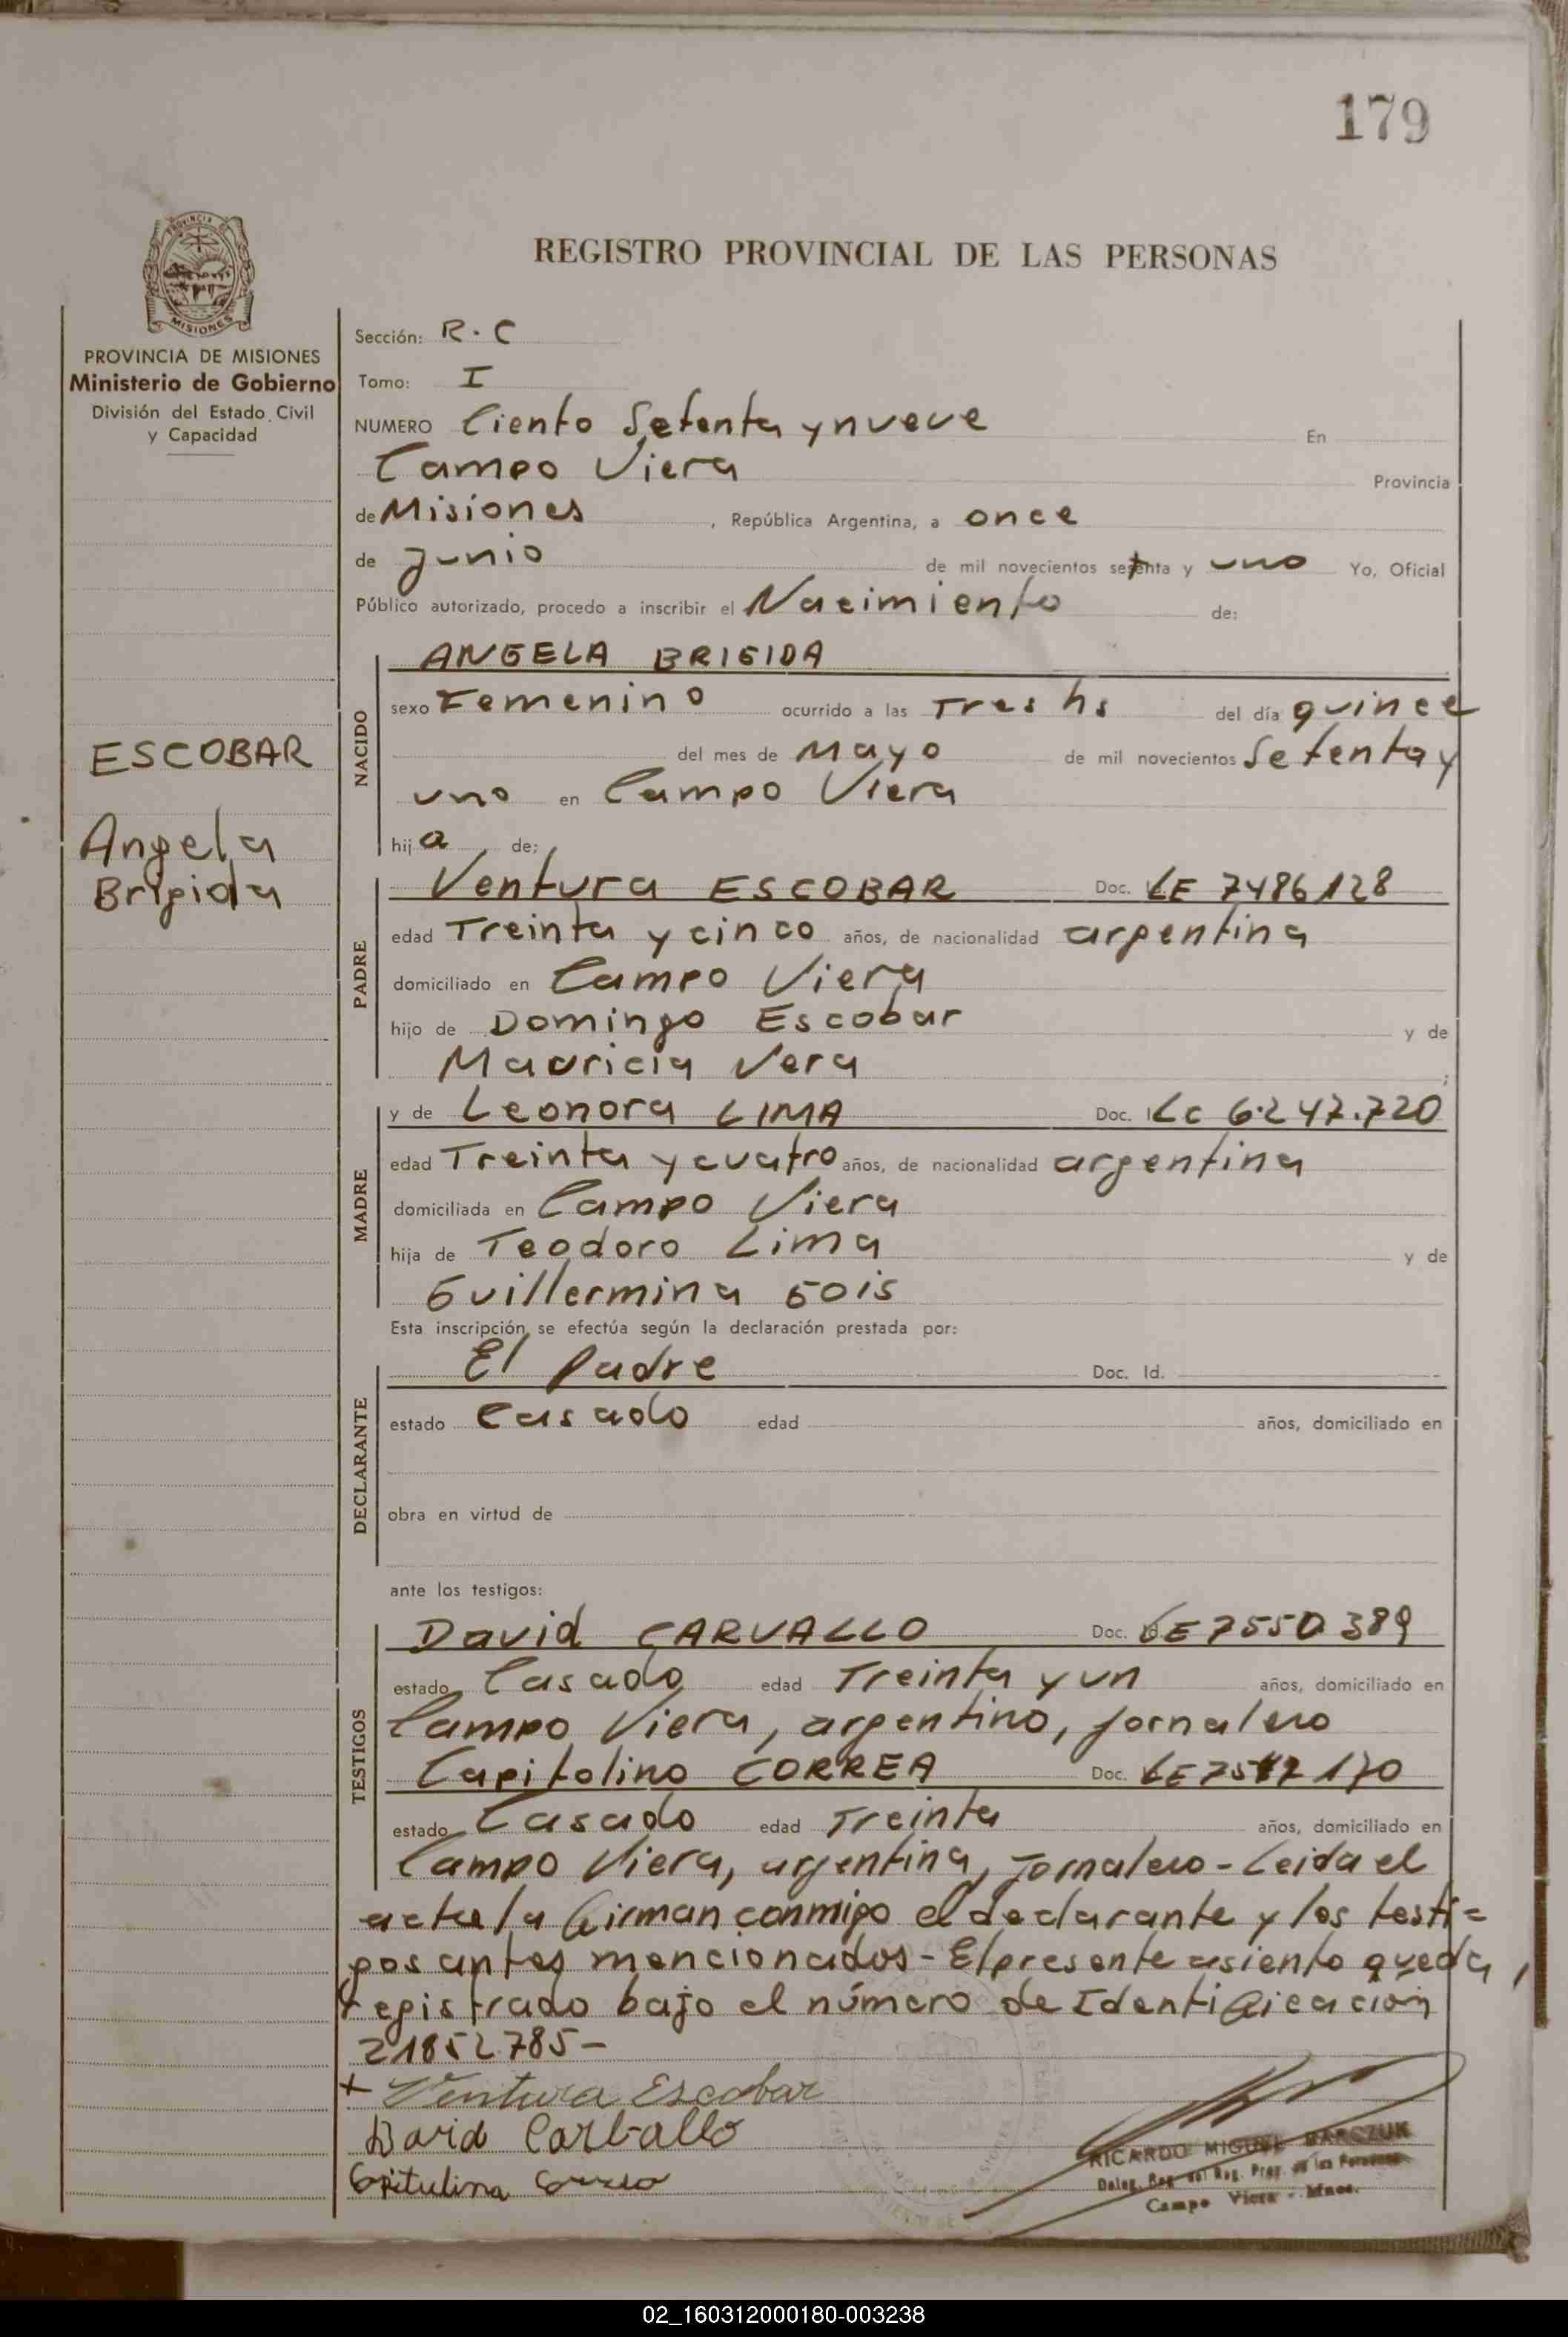 179
REGISTRO PROVINCIAL DE LAS PERSONAS
PROVINCIA DE
MISIONES
PROVINCIA DE MISIONES
Ministerio de Gobierno
División del Estado Civil
y Capacidad
ESCOBAR
Angela
Brigida
Sección: R. C
Tomo: I
NUMERO Ciento Setenta y nueve En
Campo Viera Provincia
de Misiones, República Argentina, a once
de junio de mil novecientos setenta y uno Yo, Oficial
Público autorizado, procedo a inscribir el Nacimiento de:
ANGELA BRIGIDA
NACIDO
sexo Femenino ocurrido a las Tres hs del día quince
del mes de Mayo de mil novecientos Setenta y
uno en Campo Viera
hija de:
PADRE
Ventura ESCOBAR Doc. LE 7486128
edad Treinta y cinco años, de nacionalidad argentina
domiciliado en Campo Viera
hijo de Domingo Escobar y de
Mauricia Vera ;
MADRE
y de Leonora LIMA Doc. LC 6.247.720
edad Treinta y cuatro años, de nacionalidad argentina
domiciliada en Campo Viera
hija de Teodoro Lima y de
Guillermina Gois
Esta inscripción se efectúa según la declaración prestada por:
DECLARANTE
El padre Doc. Id.
estado Casado edad años, domiciliado en
obra en virtud de
ante los testigos:
TESTIGOS
David CARVALLO Doc. LE 7550389
estado Casado edad Treinta y un años, domiciliado en
Campo Viera, argentino, jornalero
Capitolino CORREA Doc. LE
estado Casado edad Treinta años, domiciliado en
Campo Viera, argentina, jornalero - Leida el
acta la firman conmigo el declarante y los testi=
gos antes mencionados - El presente asiento queda
registrado bajo el número de Identificación
21852785 -
+ Ventura Escobar
David Carballo
RICARDO MIGUEL BARCZUK
Deleg. Reg. del Reg. Prov. de las Personas
Campo Viera - Mnes.
02_160312000180-003238